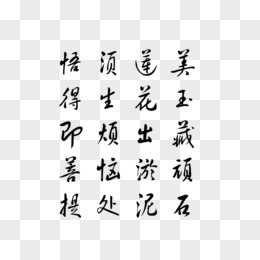 美玉藏顽石
莲花出淤泥
须生烦恼处
悟得即善提